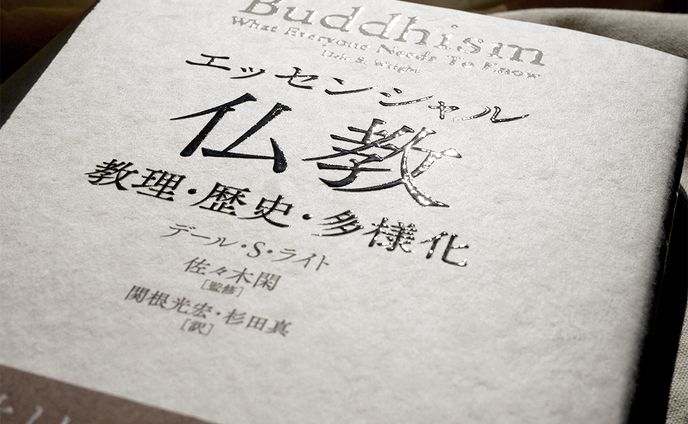 Buddhism
What Everyone Needs To Know
Dale S. Wright
エッセンシャル
仏教
教理・歴史・多様化
デール・S・ライト
佐々木閑
[監修]
関根光宏・杉田真
[訳]